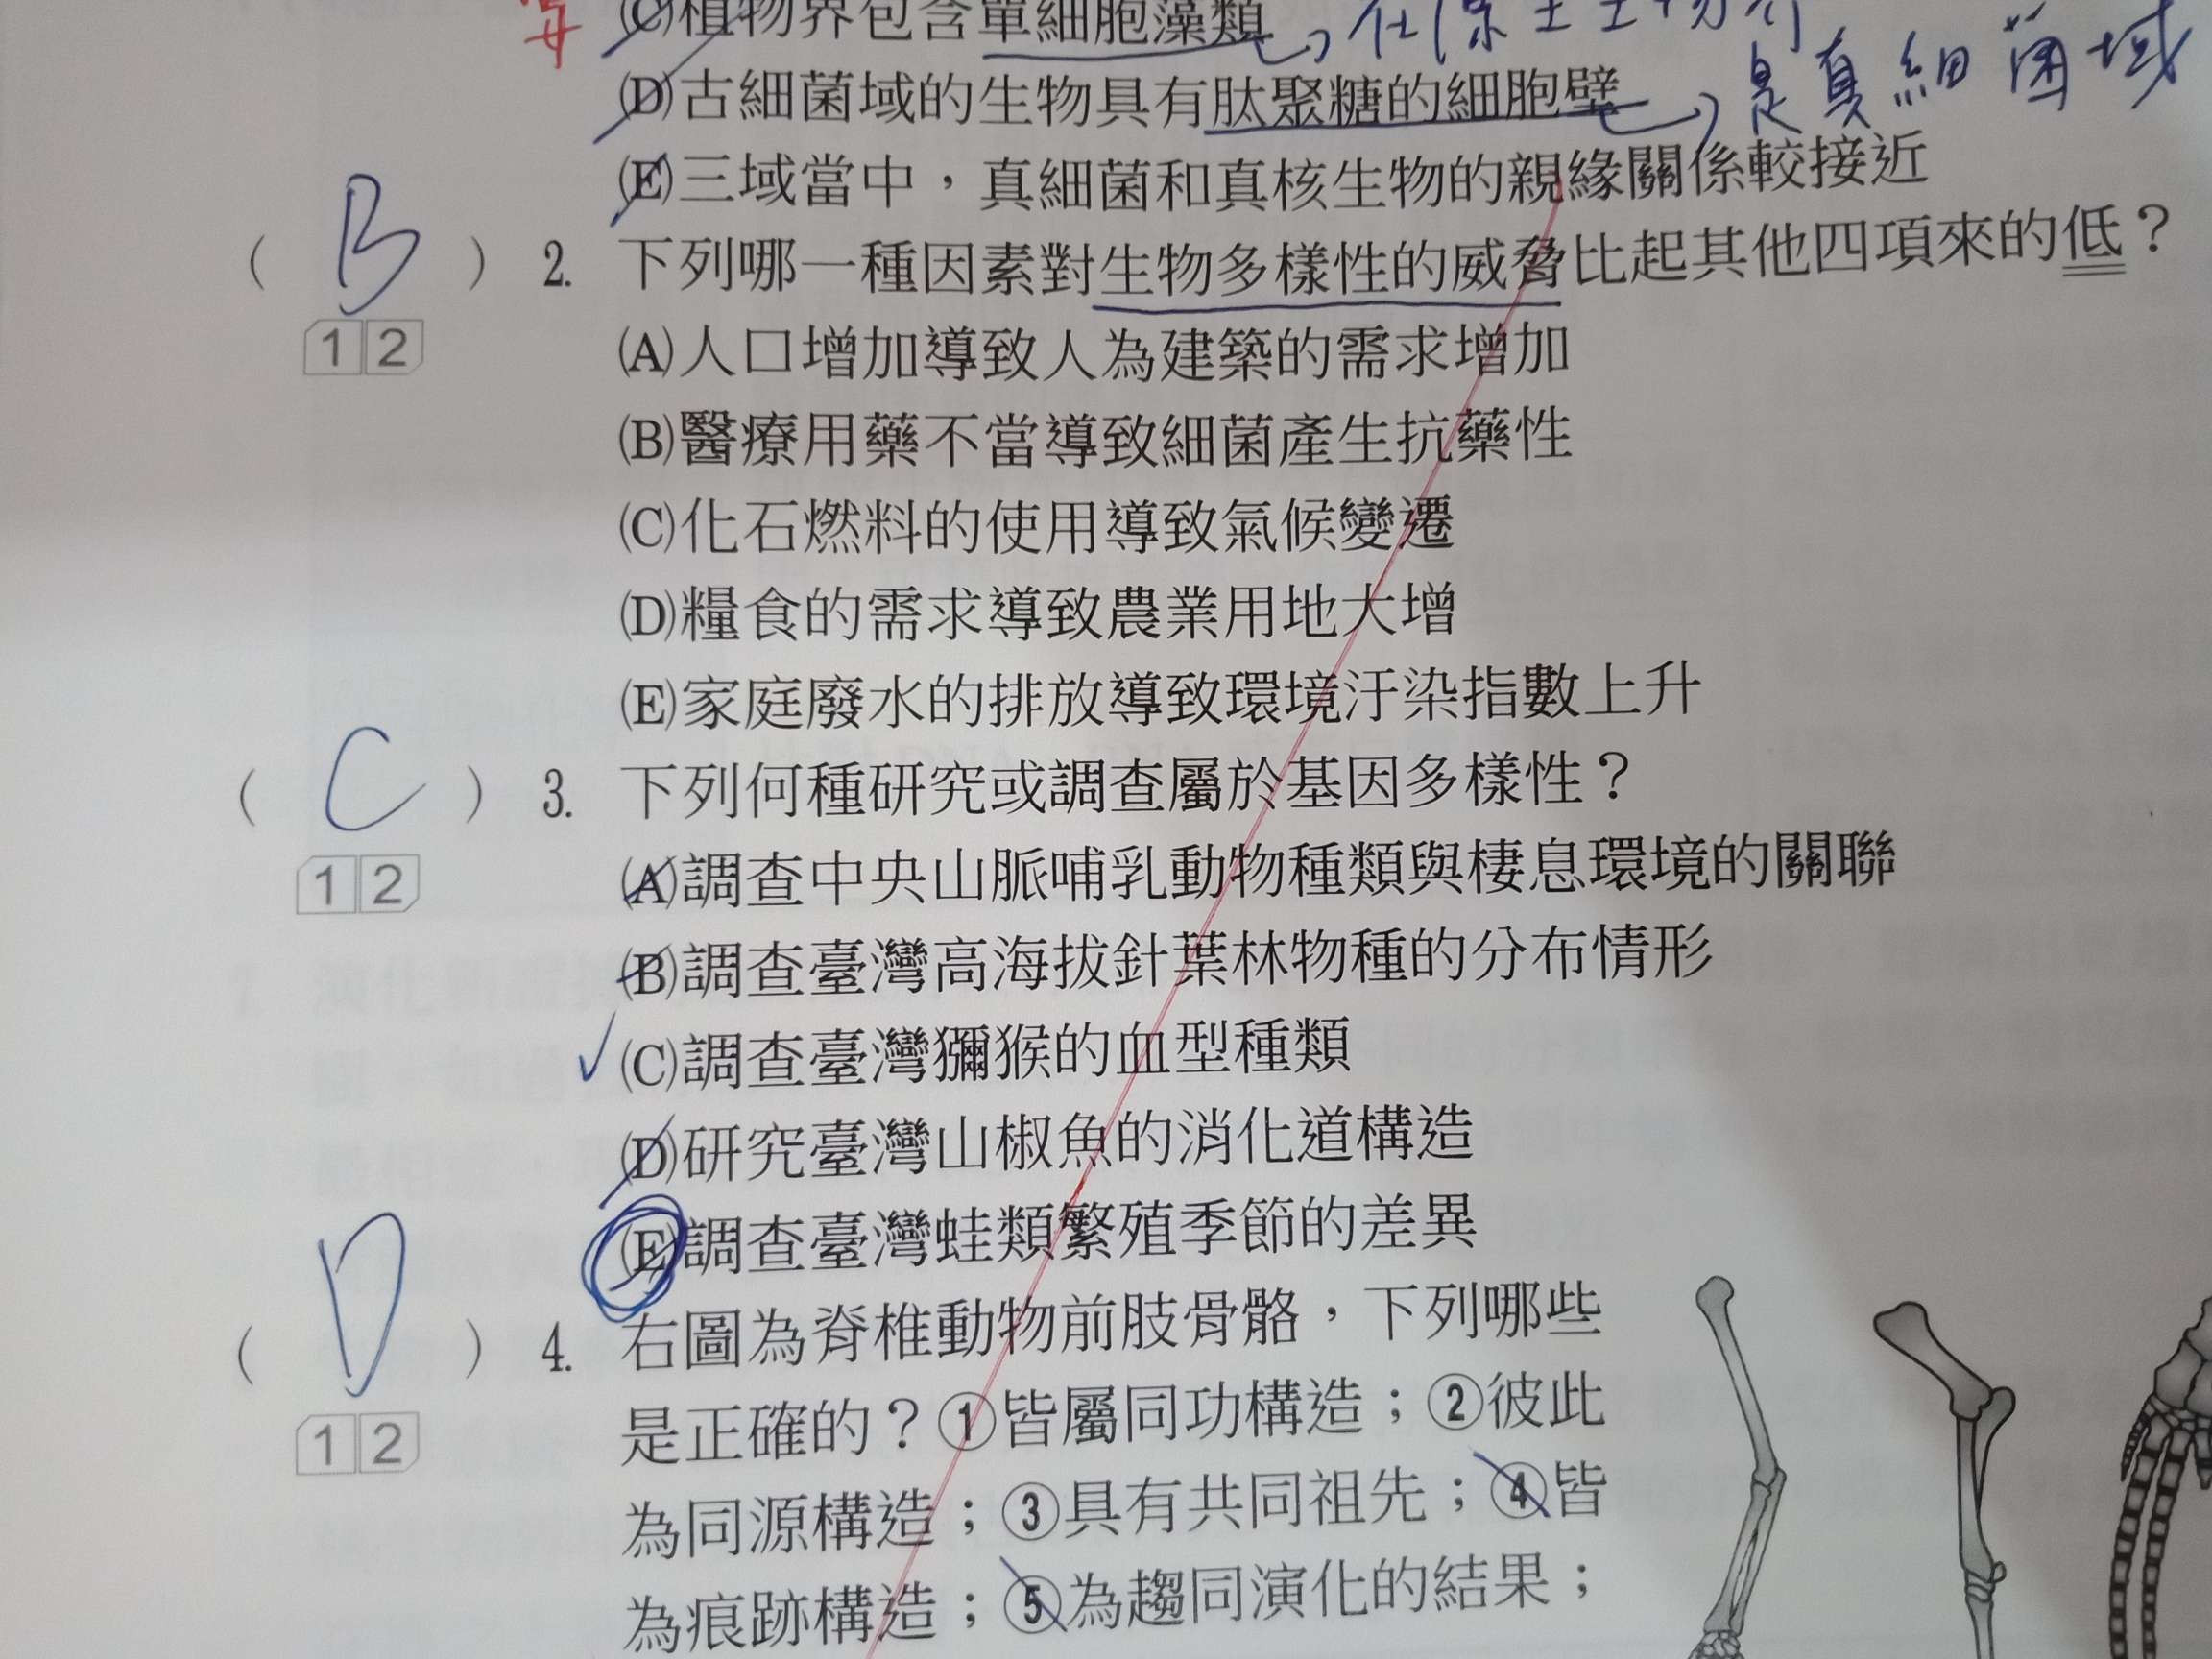 (C)植物界包含單細胞藻類 在原生生物界
(D)古細菌域的生物具有肽聚糖的細胞壁 是真細菌域
(E)三域當中，真細菌和真核生物的親緣關係較接近
( B ) 2. 下列哪一種因素對生物多樣性的威脅比起其他四項來的低？
1 2
(A)人口增加導致人為建築的需求增加
(B)醫療用藥不當導致細菌產生抗藥性
(C)化石燃料的使用導致氣候變遷
(D)糧食的需求導致農業用地大增
(E)家庭廢水的排放導致環境汙染指數上升
( C ) 3. 下列何種研究或調查屬於基因多樣性？
1 2
(A)調查中央山脈哺乳動物種類與棲息環境的關聯
(B)調查臺灣高海拔針葉林物種的分布情形
(C)調查臺灣獼猴的血型種類
(D)研究臺灣山椒魚的消化道構造
(E)調查臺灣蛙類繁殖季節的差異
( D ) 4. 右圖為脊椎動物前肢骨骼，下列哪些
1 2
是正確的？①皆屬同功構造；②彼此
為同源構造；③具有共同祖先；④皆
為痕跡構造；⑤為趨同演化的結果；